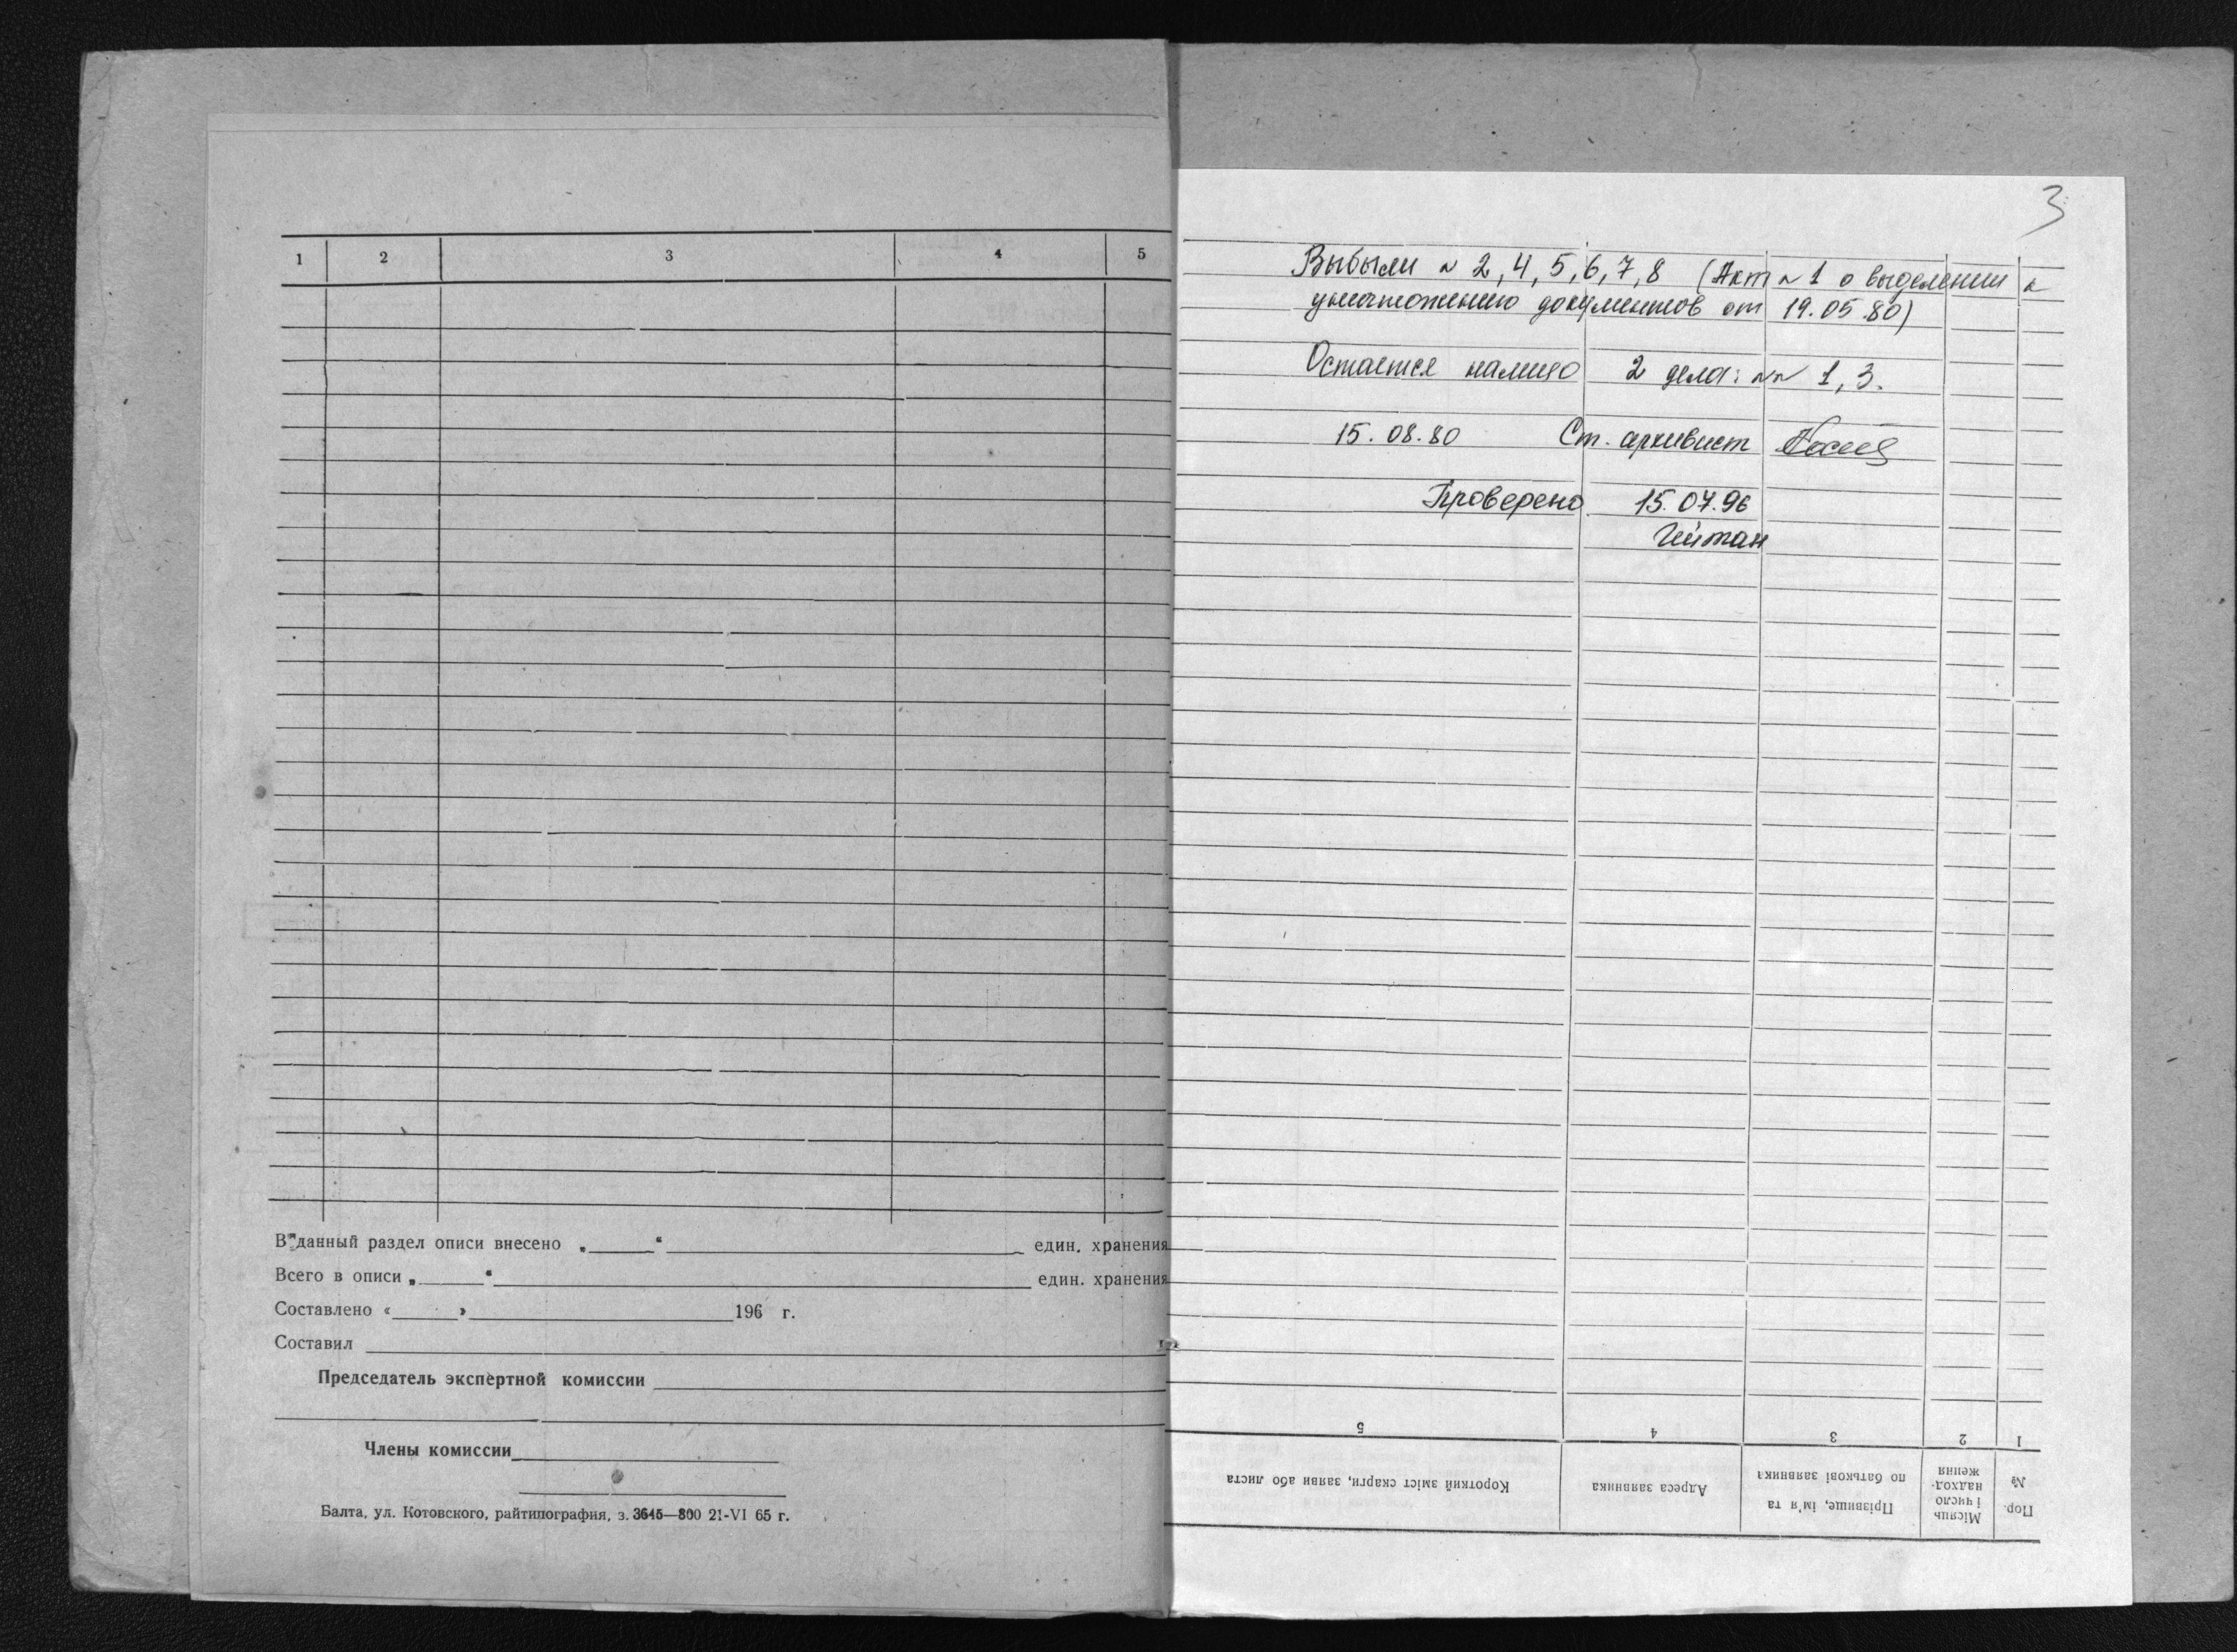 1 2 3 4 5
В данный раздел описи внесено „ “ един. хранения
Всего в описи „ “ един. хранения
Составлено « » 196 г.
Составил
Председатель экспертной комиссии
Члены комиссии
Балта, ул. Котовского, райтипография, з. 3645—800 21-VI 65 г.
3
Выбыли № 2, 4, 5, 6, 7, 8 (Акт № 1 о выделении к
уничтожению документов от 19.05.80)
Остается налицо 2 дела: №№ 1, 3.
15.08.80 Ст. архивист
Проверено 15.07.96
Гейтан
1 2 3 4 5
Пор. №
Місяць і число надход-ження
Прізвище, ім'я та по батькові заявника
Адреса заявника
Короткий зміст скарги, заяви або листа